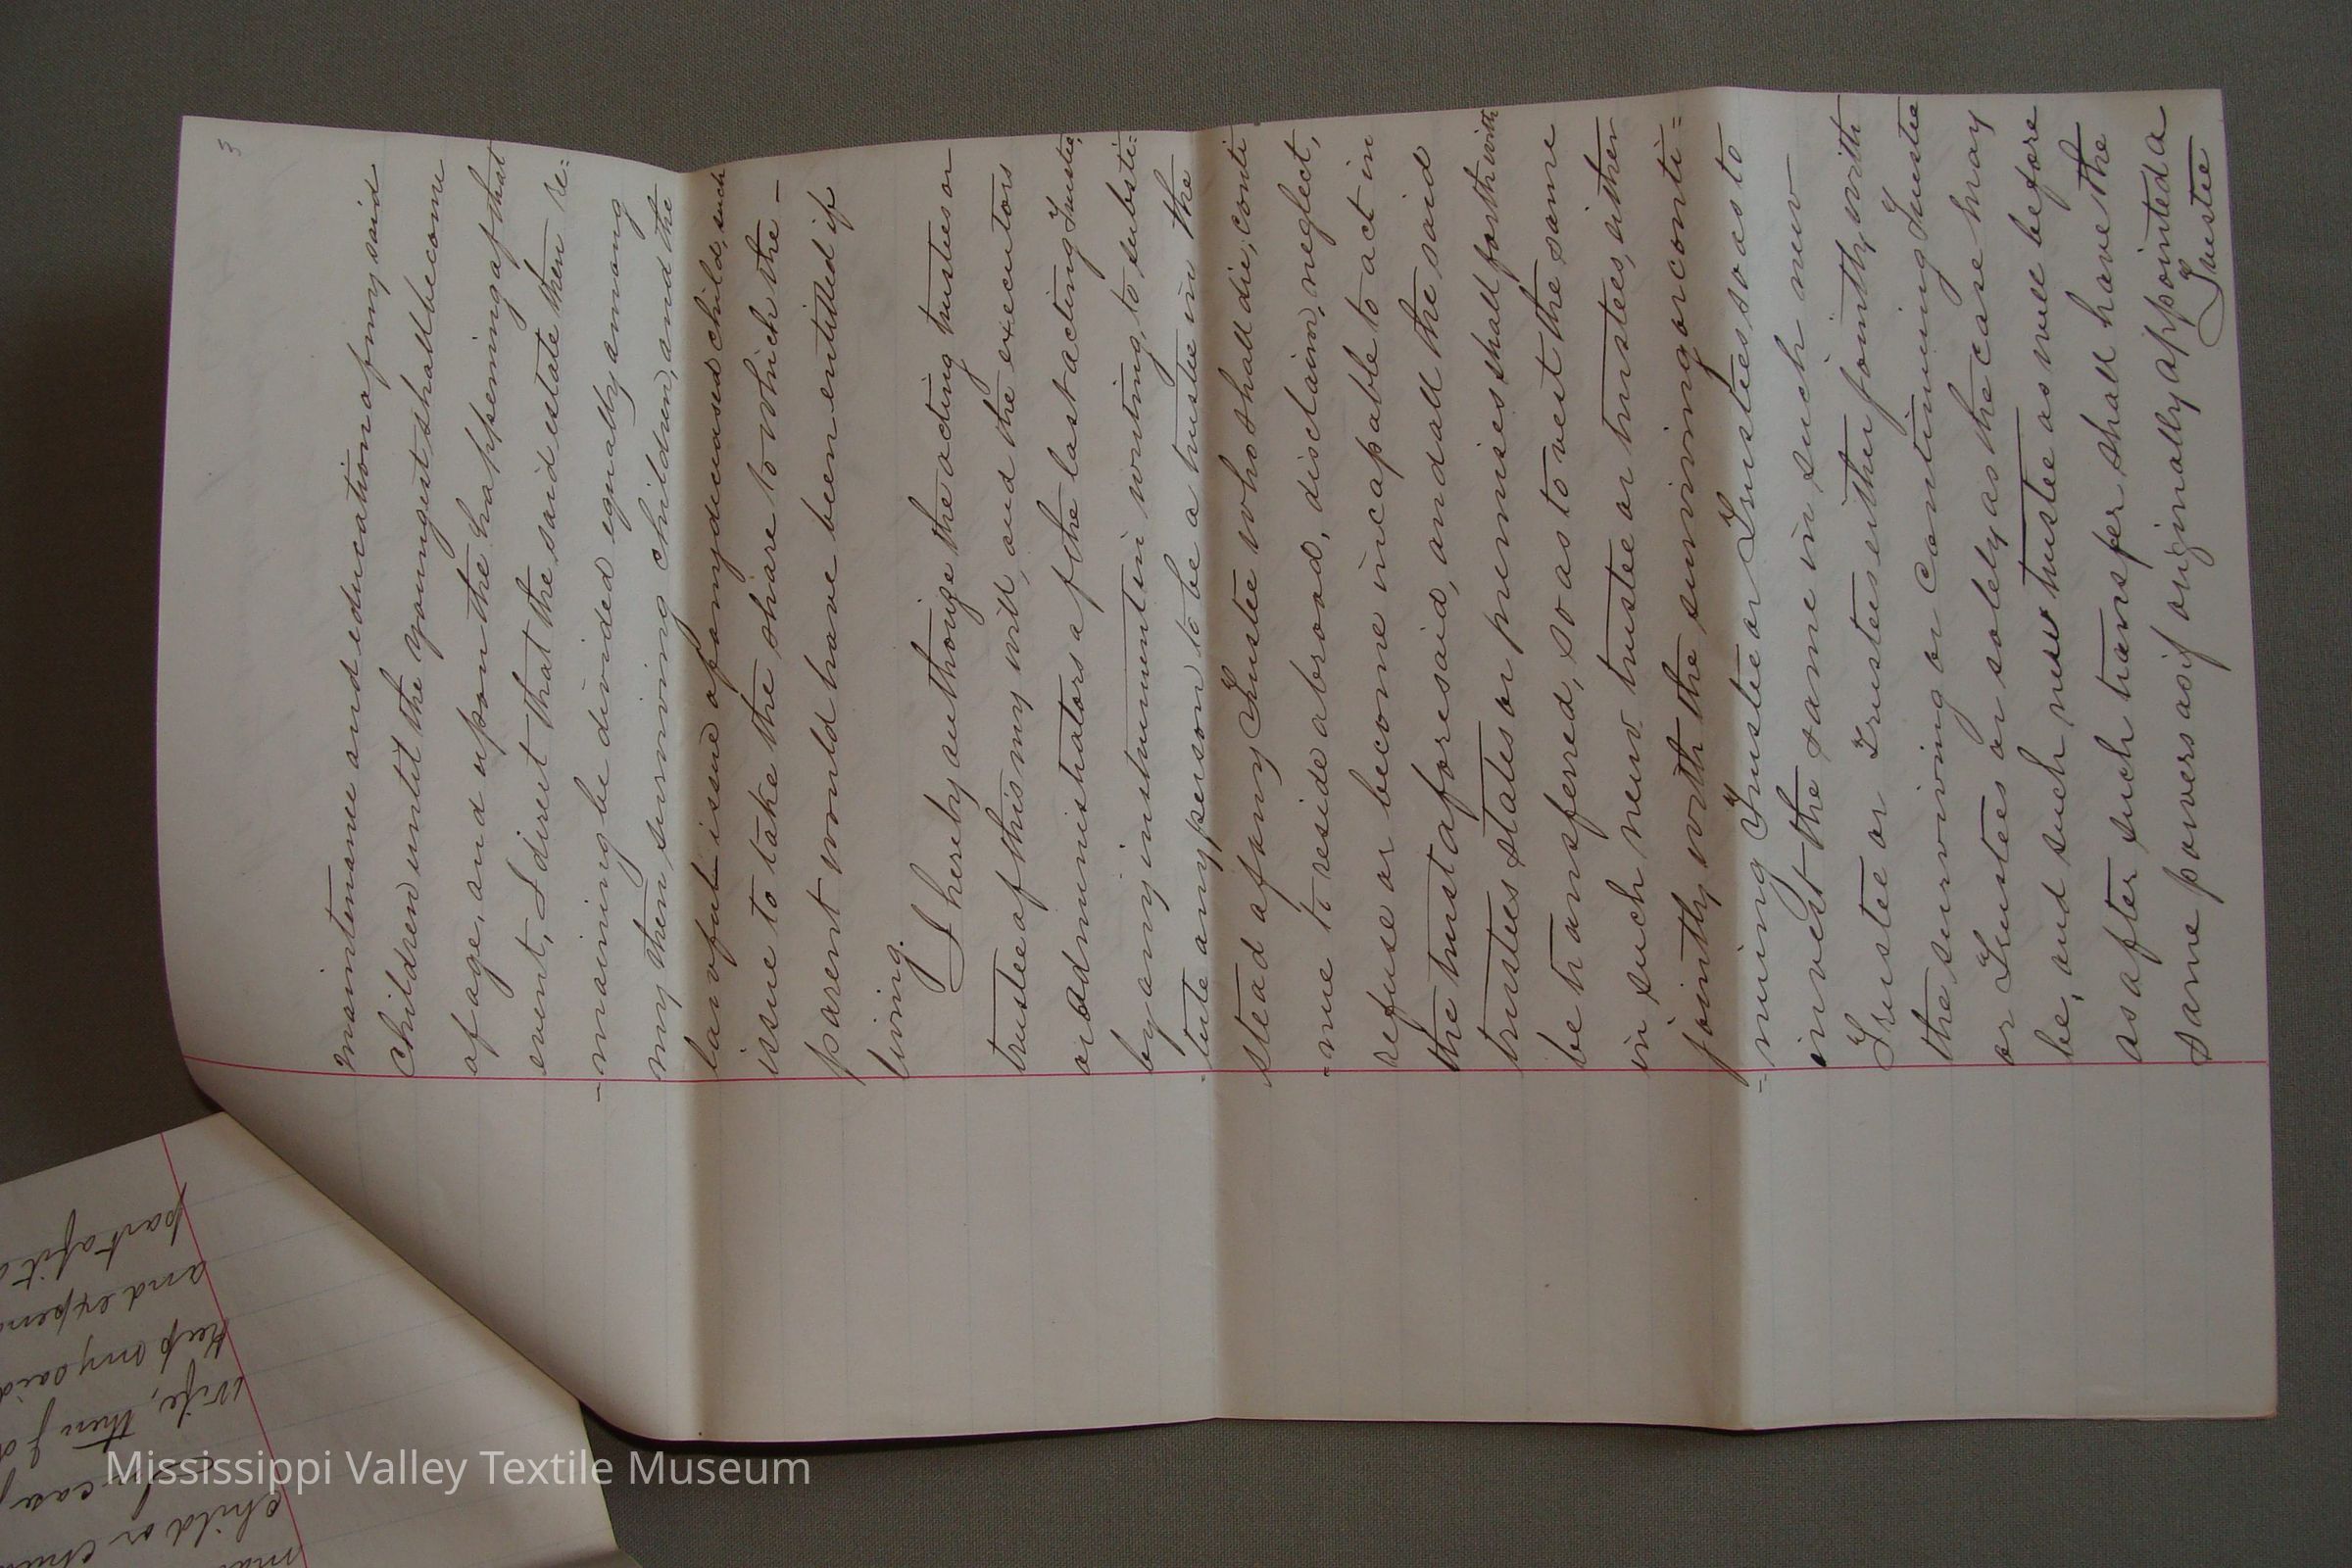 3
maintenance and education of my said
children until the youngest shall become
of age, and upon the happening of that
event, I direct that the said estate then re=
-maining be divided equally among
my then surviving children, and the
lawful issue of any deceased child, such
issue to take the share to which the -
parent would have been entitled if
living.
I hereby authorize the acting trustees or
trustee of this my will, and the executors
or administrators of the last acting Trustee,
by any instrument in writing, to substi=
-tute any person to be a trustee in the
stead of any Trustee who shall die, conti
=nue to reside abroad, disclaim, neglect,
refuse or become incapable to act in
the trust aforesaid, and all the said
trustees states or premises shall forthwith
be transferred, so as to vest the same
in such new trustee or trustees, either
jointly with the surviving or conti=
=nuing Trustee or Trustees so as to
invest the same in such new
Trustee or Trustees either jointly with
the surviving or continuing Trustee
or Trustees or solely as the case may
be, and such new trustee as well before
as after such transfer shall have the
same powers as if originally appointed a
Trustee
part of it
and expen
keep my said
wife, then I d
In case
child or chil
ma
Mississippi Valley Textile Museum